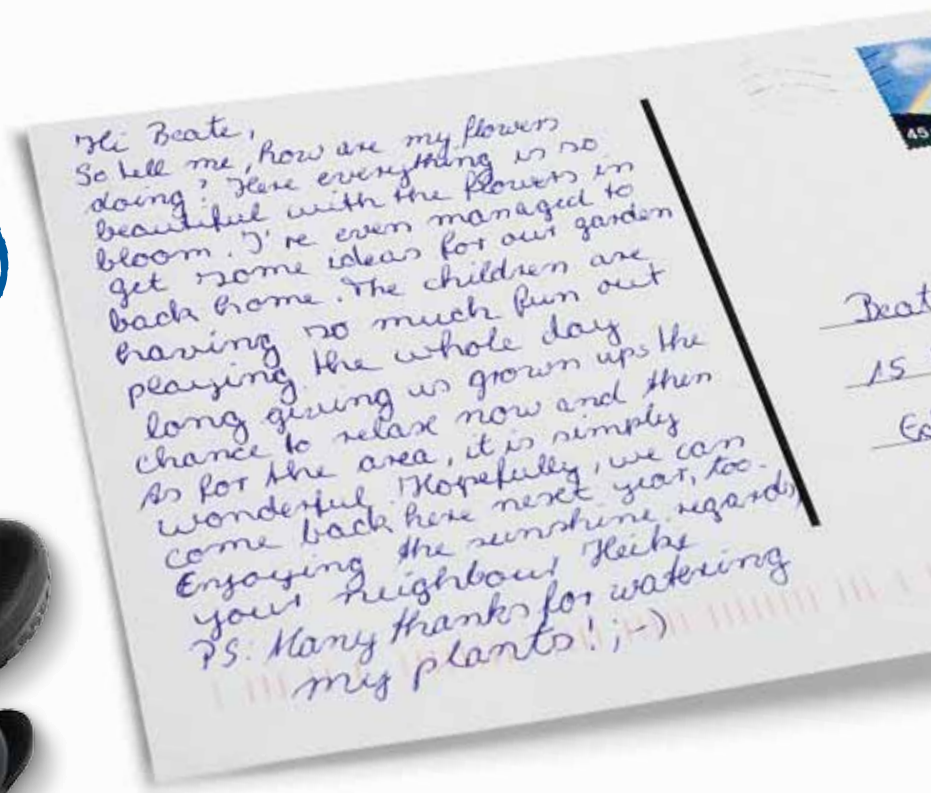 Hi Beate,
So tell me, how are my flowers
doing? Here everything is so
beautiful with the flowers in
bloom. I're even managed to
get some ideas for our garden
back home. The children are
having so much fun out
playing the whole day
long giving us grown ups the
chance to relax now and then
As for the area, it is simply
wonderful. Hopefully, we can
come back here next year, too.
Enjoying the sunshine regards,
your neighbour Heike
PS: Many thanks for watering
my plants! ;-)
45
Beat
15